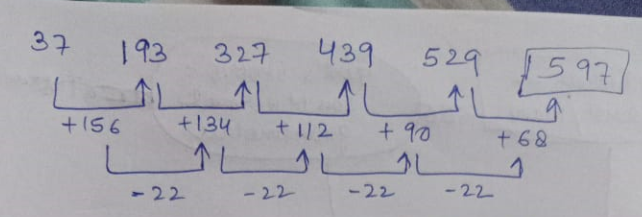 37 193 327 439 529 597
+156 +134 +112 +90 +68
-22 -22 -22 -22